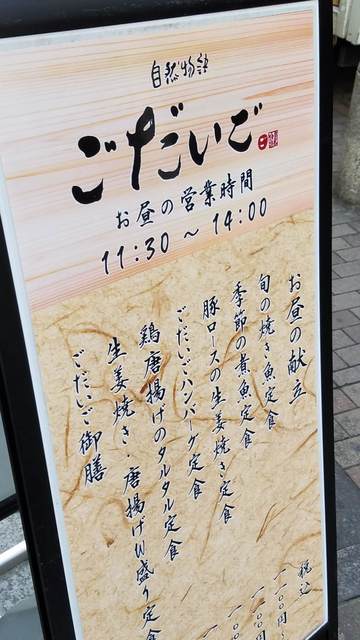 自然物語
ごだいご
お昼の営業時間
11:30 ～ 14:00
お昼の献立
旬の焼き魚定食
季節の煮魚定食
豚ロースの生姜焼き定食
ごだいごハンバーグ定食
鶏唐揚げのタルタル定食
生姜焼き・唐揚げW盛り定食
ごだいご御膳
税込